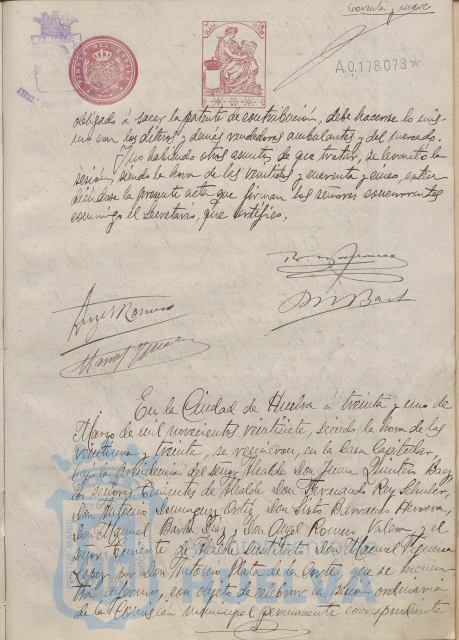 sesenta y nueve
A.0.178.073*
obligado á sacar la patente de contribución, debe hacerse lo mis-
mo con los diteros y demás vendedores ambulantes y del mercado.
Y no habiendo otros asuntos de que tratar, se levantó la
sesión, siendo la hora de las veintidos y cuarenta y cinco, exten
diéndose la presente acta que firman los señores concurrentes
conmigo el Secretario, que certifico.
Angel Romero
En la Ciudad de Huelva á treinta y uno de
Marzo de mil novecientos veintisiete, siendo la hora de las
veintiuna y treinta, se reunieron, en la Casa Capitular,
bajo la presidencia del señor Alcalde Don Juan Quintero Baez
los señores Tenientes de Alcalde Don Fernando Rey Schuler,
Don Antonio Dominguez Ortiz, Don Sixto Barranco Herrera,
Don Manuel Barba Diaz y Don Angel Romero Valera y el
señor Teniente de Alcalde Sustituto Don Manuel Figueroa
Lopez por Don Antonio Plata de la Corte, que se encuen
tra enfermo, con objeto de celebrar la sesión ordinaria
de la Comisión municipal permanente correspondiente